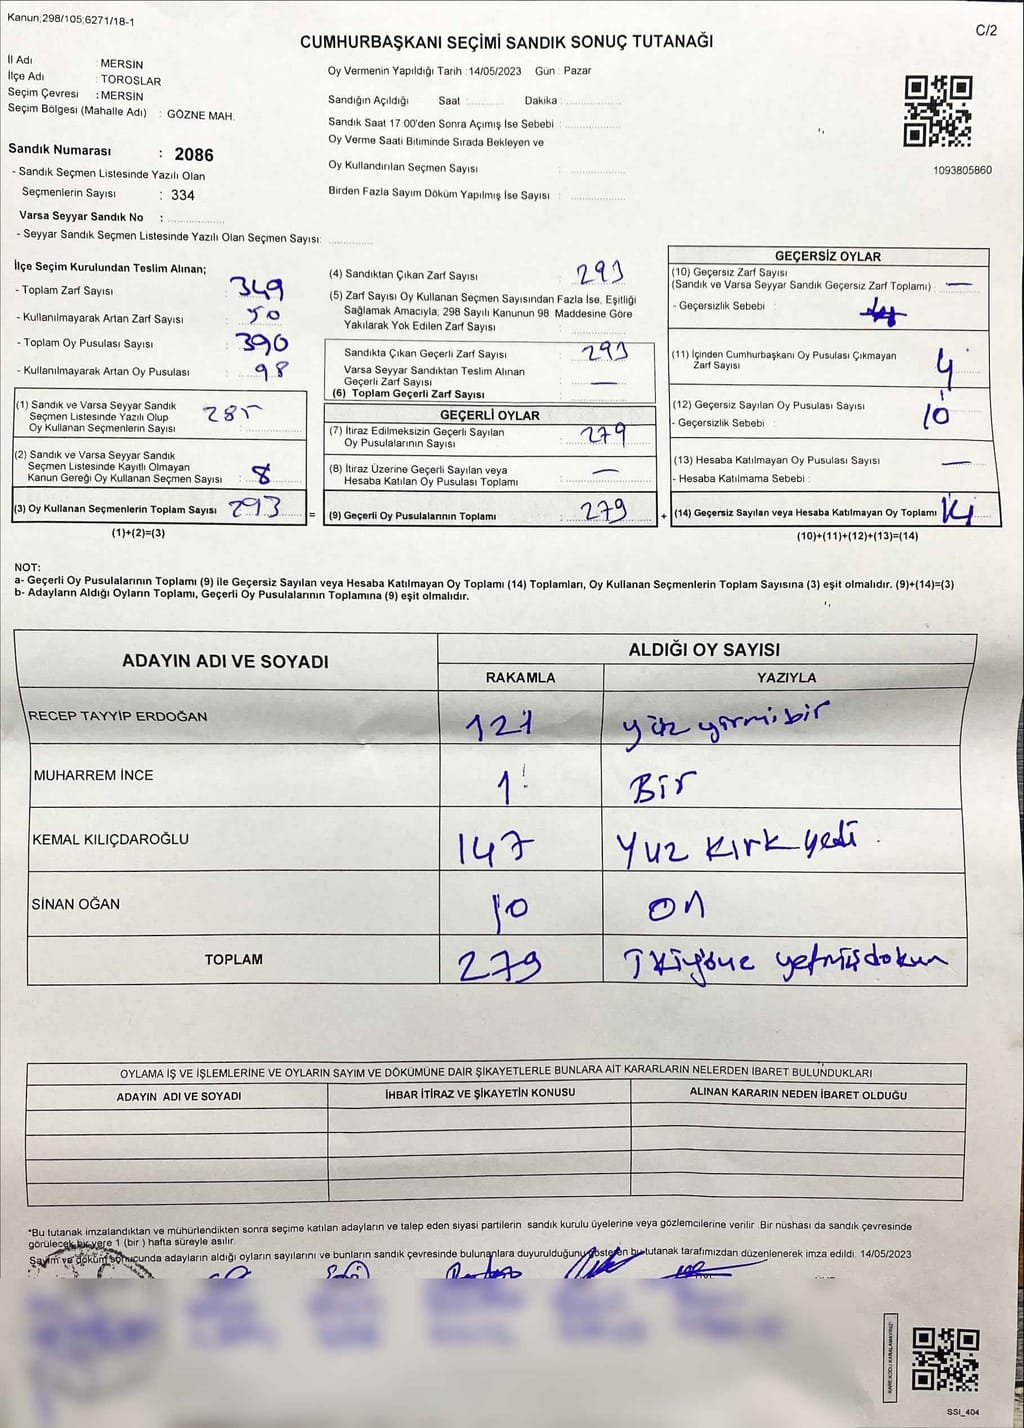 Kanun;298/105;6271/18-1
C/2
CUMHURBAŞKANI SEÇİMİ SANDIK SONUÇ TUTANAĞI
İl Adı : MERSİN
İlçe Adı : TOROSLAR
Seçim Çevresi : MERSİN
Seçim Bölgesi (Mahalle Adı) : GÖZNE MAH.
Sandık Numarası : 2086
- Sandık Seçmen Listesinde Yazılı Olan
Seçmenlerin Sayısı : 334
Varsa Seyyar Sandık No :
- Seyyar Sandık Seçmen Listesinde Yazılı Olan Seçmen Sayısı:
Oy Vermenin Yapıldığı Tarih :14/05/2023 Gün : Pazar
Sandığın Açıldığı Saat : Dakika :
Sandık Saat 17:00'den Sonra Açımış İse Sebebi :
Oy Verme Saati Bitiminde Sırada Bekleyen ve
Oy Kullandırılan Seçmen Sayısı :
Birden Fazla Sayım Döküm Yapılmış İse Sayısı :
1093805860
İlçe Seçim Kurulundan Teslim Alınan;
- Toplam Zarf Sayısı : 349
- Kullanılmayarak Artan Zarf Sayısı : 50
- Toplam Oy Pusulası Sayısı : 390
- Kullanılmayarak Artan Oy Pusulası : 98
(1) Sandık ve Varsa Seyyar Sandık
Seçmen Listesinde Yazılı Olup
Oy Kullanan Seçmenlerin Sayısı : 285
(2) Sandık ve Varsa Seyyar Sandık
Seçmen Listesinde Kayıtlı Olmayan
Kanun Gereği Oy Kullanan Seçmen Sayısı : 8
(3) Oy Kullanan Seçmenlerin Toplam Sayısı : 293
(1)+(2)=(3)
=
(4) Sandıktan Çıkan Zarf Sayısı : 293
(5) Zarf Sayısı Oy Kullanan Seçmen Sayısından Fazla İse, Eşitliği
Sağlamak Amacıyla; 298 Sayılı Kanunun 98. Maddesine Göre
Yakılarak Yok Edilen Zarf Sayısı :
Sandıkta Çıkan Geçerli Zarf Sayısı : 293
Varsa Seyyar Sandıktan Teslim Alınan
Geçerli Zarf Sayısı : —
(6) Toplam Geçerli Zarf Sayısı :
GEÇERLİ OYLAR
(7) İtiraz Edilmeksizin Geçerli Sayılan
Oy Pusulalarının Sayısı : 279
(8) İtiraz Üzerine Geçerli Sayılan veya
Hesaba Katılan Oy Pusulası Toplamı : —
(9) Geçerli Oy Pusulalarının Toplamı : 279
+
GEÇERSİZ OYLAR
(10) Geçersiz Zarf Sayısı
(Sandık ve Varsa Seyyar Sandık Geçersiz Zarf Toplamı) : —
- Geçersizlik Sebebi :
(11) İçinden Cumhurbaşkanı Oy Pusulası Çıkmayan
Zarf Sayısı : 4
(12) Geçersiz Sayılan Oy Pusulası Sayısı : 10
- Geçersizlik Sebebi :
(13) Hesaba Katılmayan Oy Pusulası Sayısı : —
- Hesaba Katılmama Sebebi :
(14) Geçersiz Sayılan veya Hesaba Katılmayan Oy Toplamı : 14
(10)+(11)+(12)+(13)=(14)
NOT:
a- Geçerli Oy Pusulalarının Toplamı (9) ile Geçersiz Sayılan veya Hesaba Katılmayan Oy Toplamı (14) Toplamları, Oy Kullanan Seçmenlerin Toplam Sayısına (3) eşit olmalıdır. (9)+(14)=(3)
b- Adayların Aldığı Oyların Toplamı, Geçerli Oy Pusulalarının Toplamına (9) eşit olmalıdır.
ADAYIN ADI VE SOYADI
ALDIĞI OY SAYISI
RAKAMLA YAZIYLA
RECEP TAYYİP ERDOĞAN 121 yüz yirmi bir
MUHARREM İNCE 1 Bir
KEMAL KILIÇDAROĞLU 147 Yuz kırk yedi
SİNAN OĞAN 10 on
TOPLAM 279 İkiyüz yetmişdokuz
OYLAMA İŞ VE İŞLEMLERİNE VE OYLARIN SAYIM VE DÖKÜMÜNE DAİR ŞİKAYETLERLE BUNLARA AİT KARARLARIN NELERDEN İBARET BULUNDUKLARI
ADAYIN ADI VE SOYADI İHBAR İTİRAZ VE ŞİKAYETİN KONUSU ALINAN KARARIN NEDEN İBARET OLDUĞU
*Bu tutanak imzalandıktan ve mühürlendikten sonra seçime katılan adayların ve talep eden siyasi partilerin sandık kurulu üyelerine veya gözlemcilerine verilir. Bir nüshası da sandık çevresinde
görülecek bir yere 1 (bir ) hafta süreyle asılır.
Sayım ve döküm sonucunda adayların aldığı oyların sayılarını ve bunların sandık çevresinde bulunanlara duyurulduğunu gösteren bu tutanak tarafımızdan düzenlenerek imza edildi. 14/05/2023
KARE KODU KARALAMAYINIZ!
SSI_404